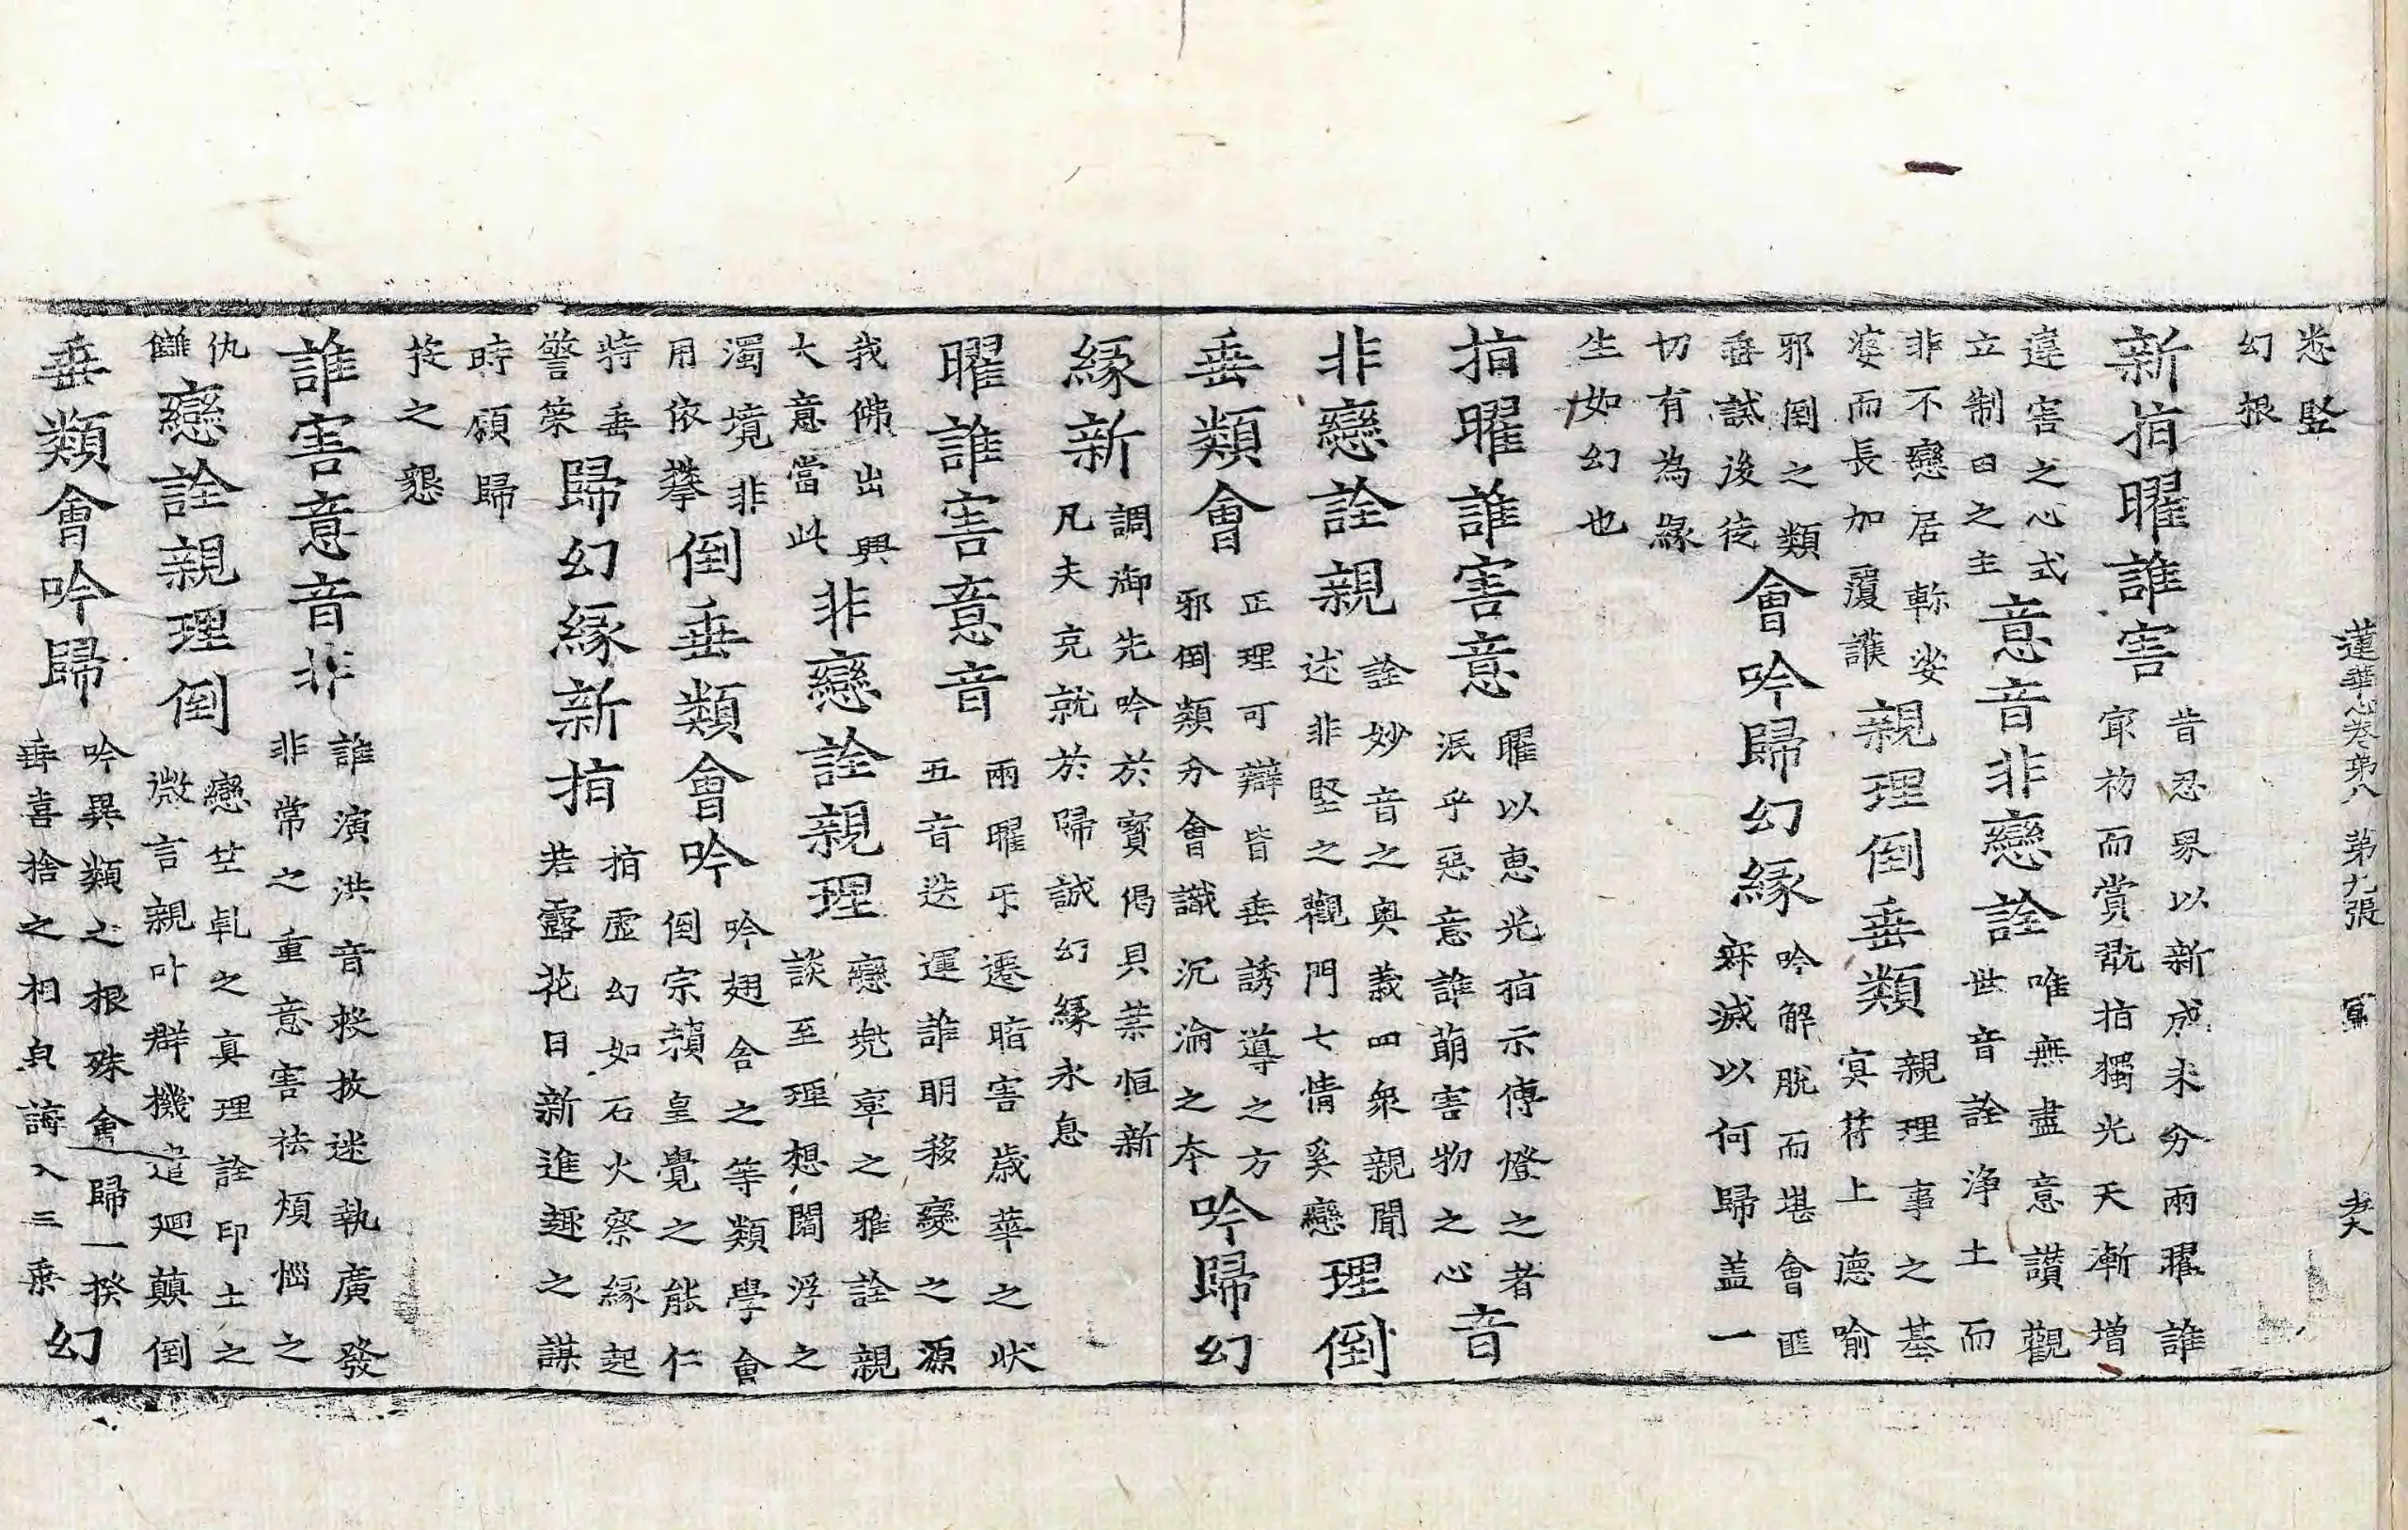 蓮華心卷第八 第九張 冩
恚堅
幻根
新指曜誰害
昔忍界以新成未分兩曜誰
㝡初而賞翫指獨光天漸增
違害之心式
立制日之主
意音非戀詮
唯無盡意讚觀
世音詮淨土而
非不戀居軫娑
婆而長加覆護
親理倒垂類
親理事之基
冥符上德喻
邪倒之類
垂試後徒
會吟歸幻緣
吟解脫而堪會匪
寂滅以何歸盖一
切有為緣
生如幻也
指曜誰害意
曜以恵光指示傳燈之者
泯乎惡意誰萠害物之心
音
非戀詮親
詮妙音之奥義四衆親聞
述非堅之觀門七情奚戀
理倒
垂類會
正理可辯皆垂誘導之方
邪倒類分會識沉淪之本
吟歸幻
緣新
調御先吟於寳偈貝葉恒新
凡夫克就於歸誠幻緣永息
曜誰害意音
兩曜乐遷暗害歲華之狀
五音迭運誰明移變之源
我佛出興
大意當此
非戀詮親理
戀兠率之雅詮親
談至理想閻浮之
濁境非
用依攀
倒垂類會吟
吟翅舍之等類學會
倒宗頼皇覺之能仁
特垂
警策
歸幻緣新指
指虛幻如石火察緣起
若露花日新進趣之謀
時願歸
投之懇
誰害意音非
誰演洪音拯拔迷執廣發
非常之重意害祛煩惱之
仇
讎
戀詮親理倒
戀竺乹之真理詮印土之
微言親叶群機遣廻顛倒
垂類會吟歸
吟異類之根殊會歸一揆
垂喜捨之相貞誘入三乗
幻